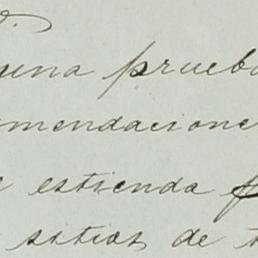 una prueba
mendacione
estienda
sitios de